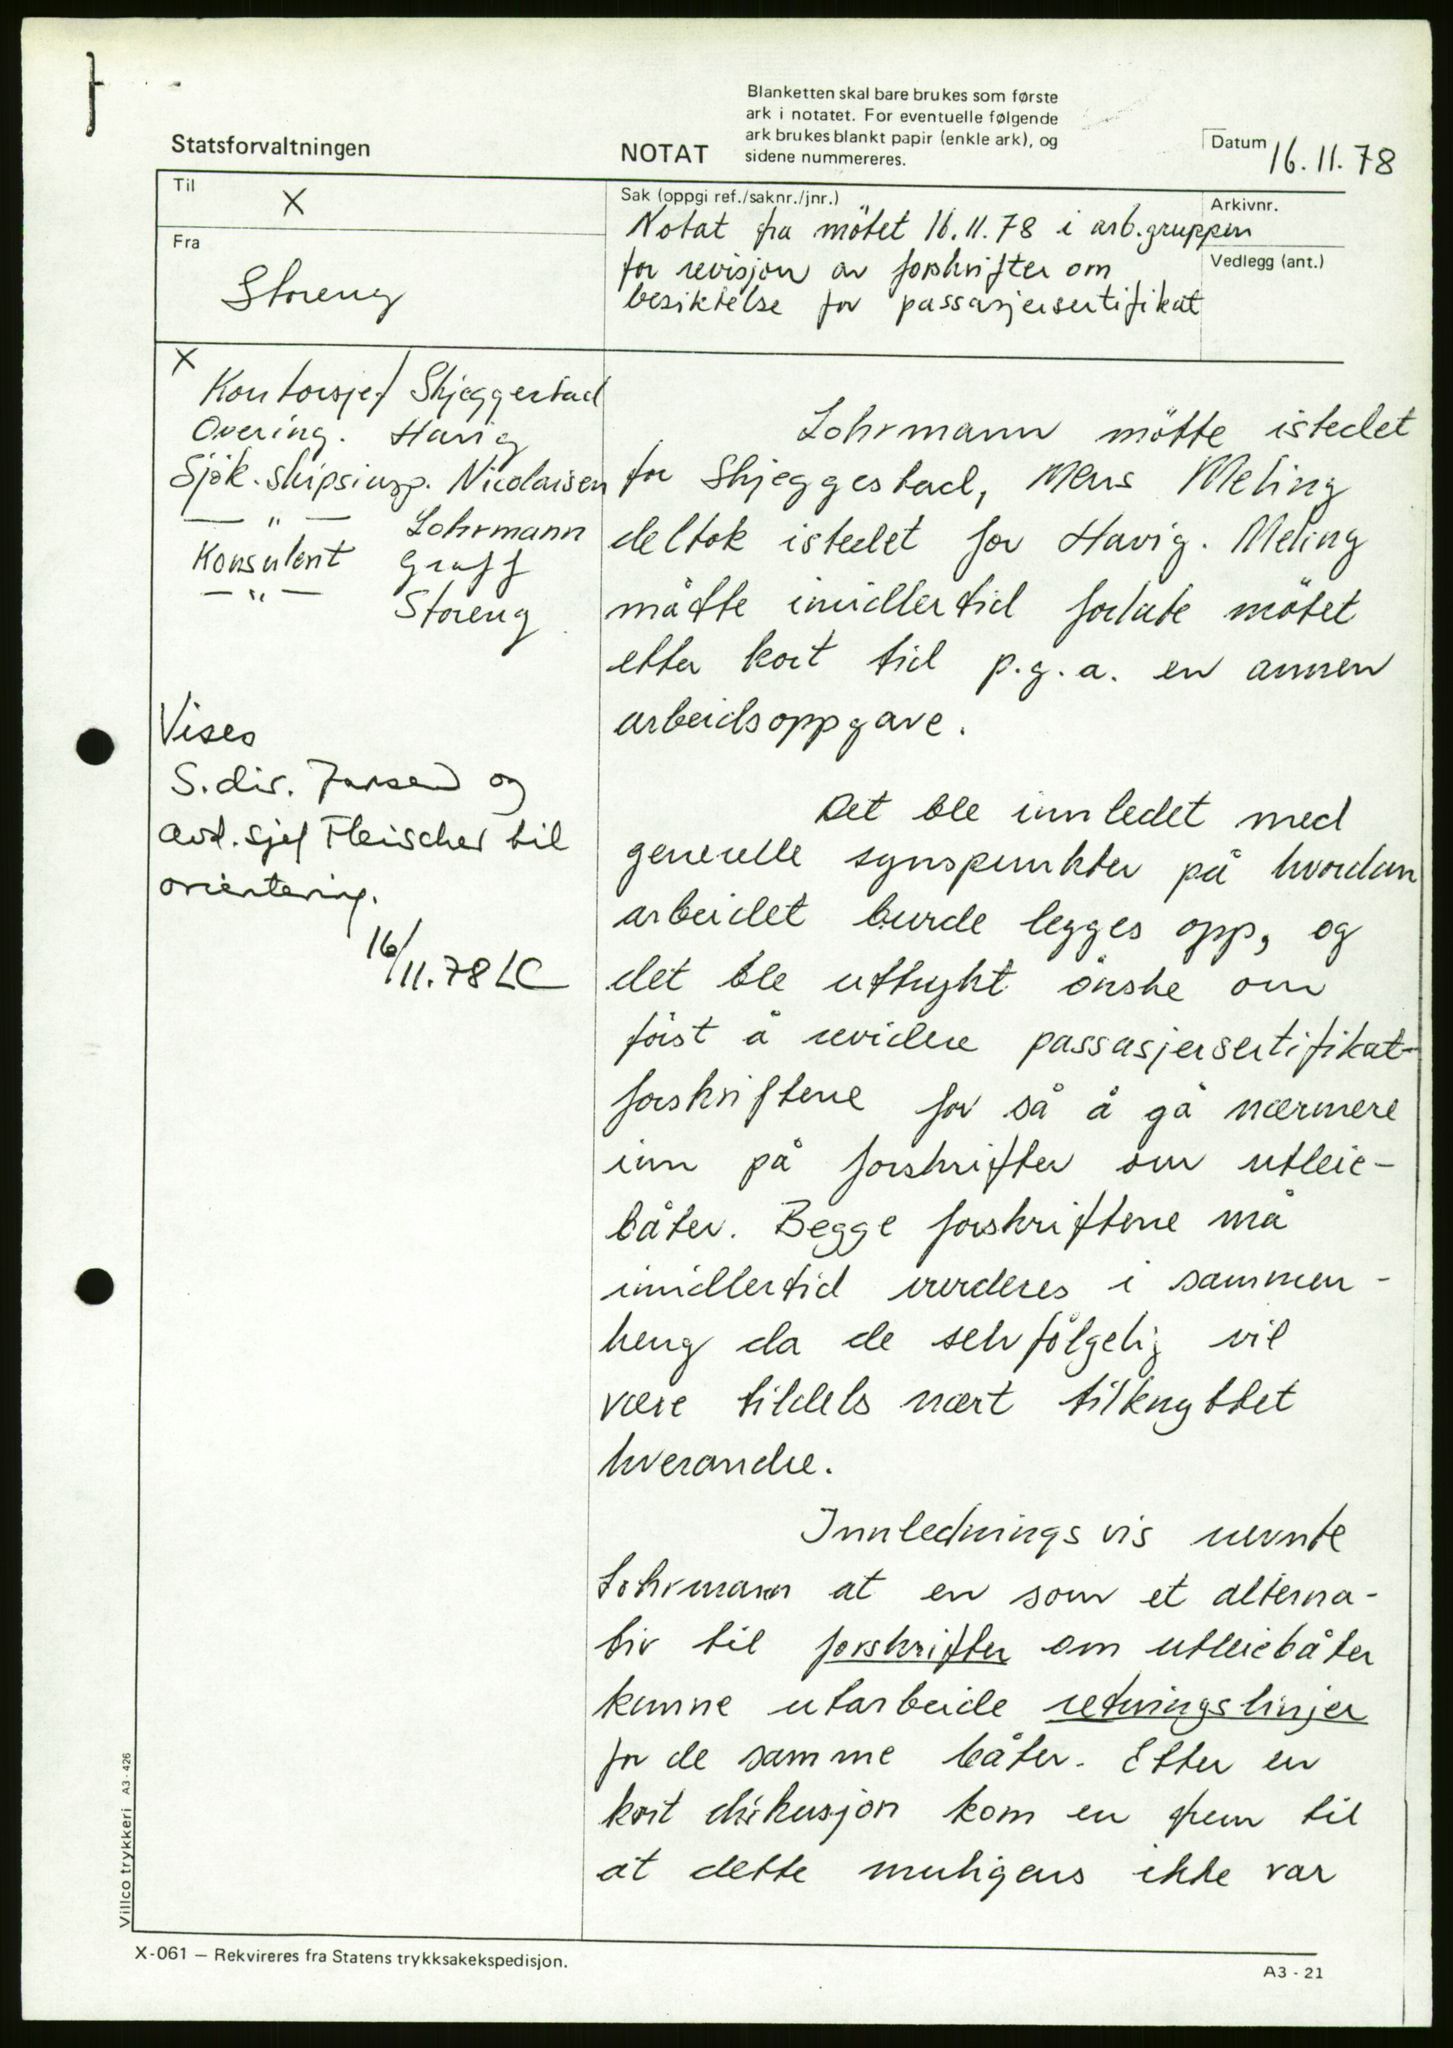 Blanketten skal bare brukes som første
ark i notatet. For eventuelle følgende
ark brukes blankt papir (enkle ark), og
sidene nummereres.
Statsforvaltningen
NOTAT
Datum 16.11.78
Til
X
Fra
Storeng
Sak (oppgi ref./saknr./jnr.)
Notat fra mötet 16.11.78 i arb.gruppen
for revisjon av forskrifter om
besiktelse for passasjersertifikat
Arkivnr.
Vedlegg (ant.)
X
Kontorsjef Skjeggestad
Overing. Havig
Sjök. skipsinsp. Nicolaisen
— " — Lohrmann
Konsulent Graff
— " — Storeng
Vises
S.dir. Jansen og
avd. sjef Fleischer til
orientering.
16/11.78 LC
Lohrmann mötte istedet
for Skjeggestad, mens Meling
deltok istedet for Havig. Meling
måtte imidlertid forlate mötet
etter kort tid p.g.a. en annen
arbeidsoppgave.
Det ble innledet med
generelle synspunkter på hvordan
arbeidet burde legges opp, og
det ble uttrykt önske om
först å revidere passasjersertifikat-
forskriftene for så å gå nærmere
inn på forskrifter om utleie-
båter. Begge forskriftene må
imidlertid vurderes i sammen-
heng da de selvfölgelig vil
være tildels nært tilknyttet
hverandre.
Innledningsvis nevnte
Lohrmann at en som et alterna-
tiv til forskrifter om utleiebåter
kunne utarbeide retningslinjer
for de samme båter. Etter en
kort diskusjon kom en frem til
at dette muligens ikke var
Villco trykkeri A3-426
X-061 — Rekvireres fra Statens trykksakekspedisjon.
A3-21